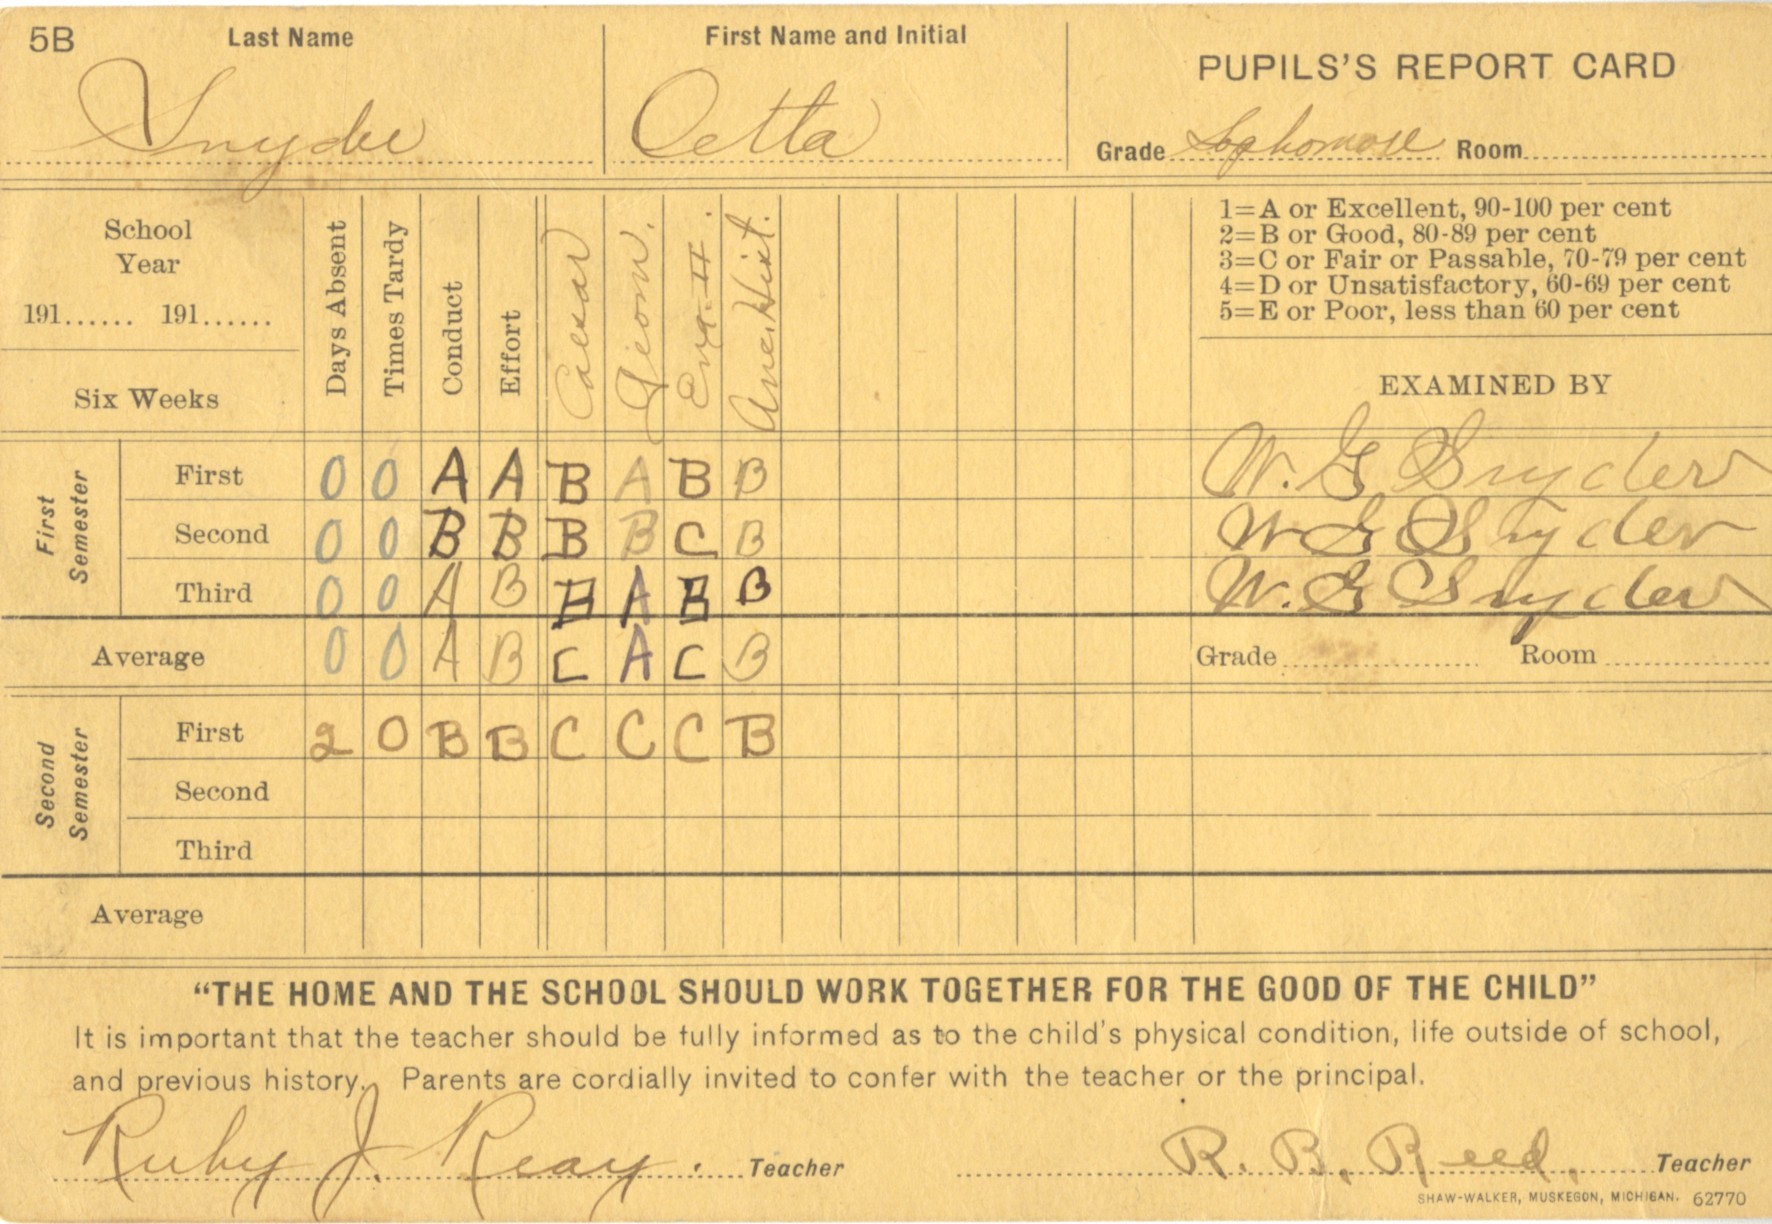 5B Last Name First Name and Initial
PUPILS'S REPORT CARD
Snyder Oetta
Grade Sophomore Room
School Year
191...... 191......
Six Weeks
Days Absent Times Tardy Conduct Effort Caesar Geom. Eng. II. Anc. Hist.
1=A or Excellent, 90-100 per cent
2=B or Good, 80-89 per cent
3=C or Fair or Passable, 70-79 per cent
4=D or Unsatisfactory, 60-69 per cent
5=E or Poor, less than 60 per cent
EXAMINED BY
First Semester
First 0 0 A A B A B B W. G Snyder
Second 0 0 B B B B C B W G Snyder
Third 0 0 A B B A B B W. G Snyder
Average 0 0 A B C A C B Grade Room
Second Semester
First 2 0 B B C C C B
Second
Third
Average
"THE HOME AND THE SCHOOL SHOULD WORK TOGETHER FOR THE GOOD OF THE CHILD"
It is important that the teacher should be fully informed as to the child's physical condition, life outside of school,
and previous history. Parents are cordially invited to confer with the teacher or the principal.
Ruby J. Reay. Teacher R. B. Reed, Teacher
SHAW-WALKER, MUSKEGON, MICHIGAN. 62770